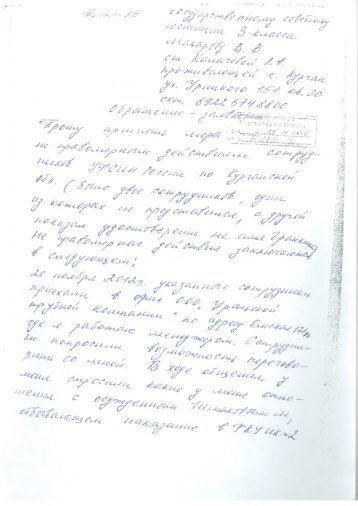 государственному советнику
юстиции 3 класса
Макарову В. В
от Калачевой Л.А.
проживающей г. Курган
ул. Урицкого 151 кв. 20
сот. 89225748800
Обращение-заявление
Прошу принять меры
к неправомерным действиям сотруд-
ников УФСИН России по Курганской
обл. (Было двое сотрудников, один
из которых не представился, а другой
показал удостоверение на имя
Не правомерные действия заключаются
в следующем:
20 ноября 2012г. указанные сотрудники
приехали в офис ООО „Уральской
трубной компании" по адресу
где я работаю менеджером. Сотрудни-
ки попросили возможность перегово-
рить со мной. В ходе общения у
меня спросили какие у меня отно-
шения с осужденным
отбывающем наказание в ФКУ ИК-2